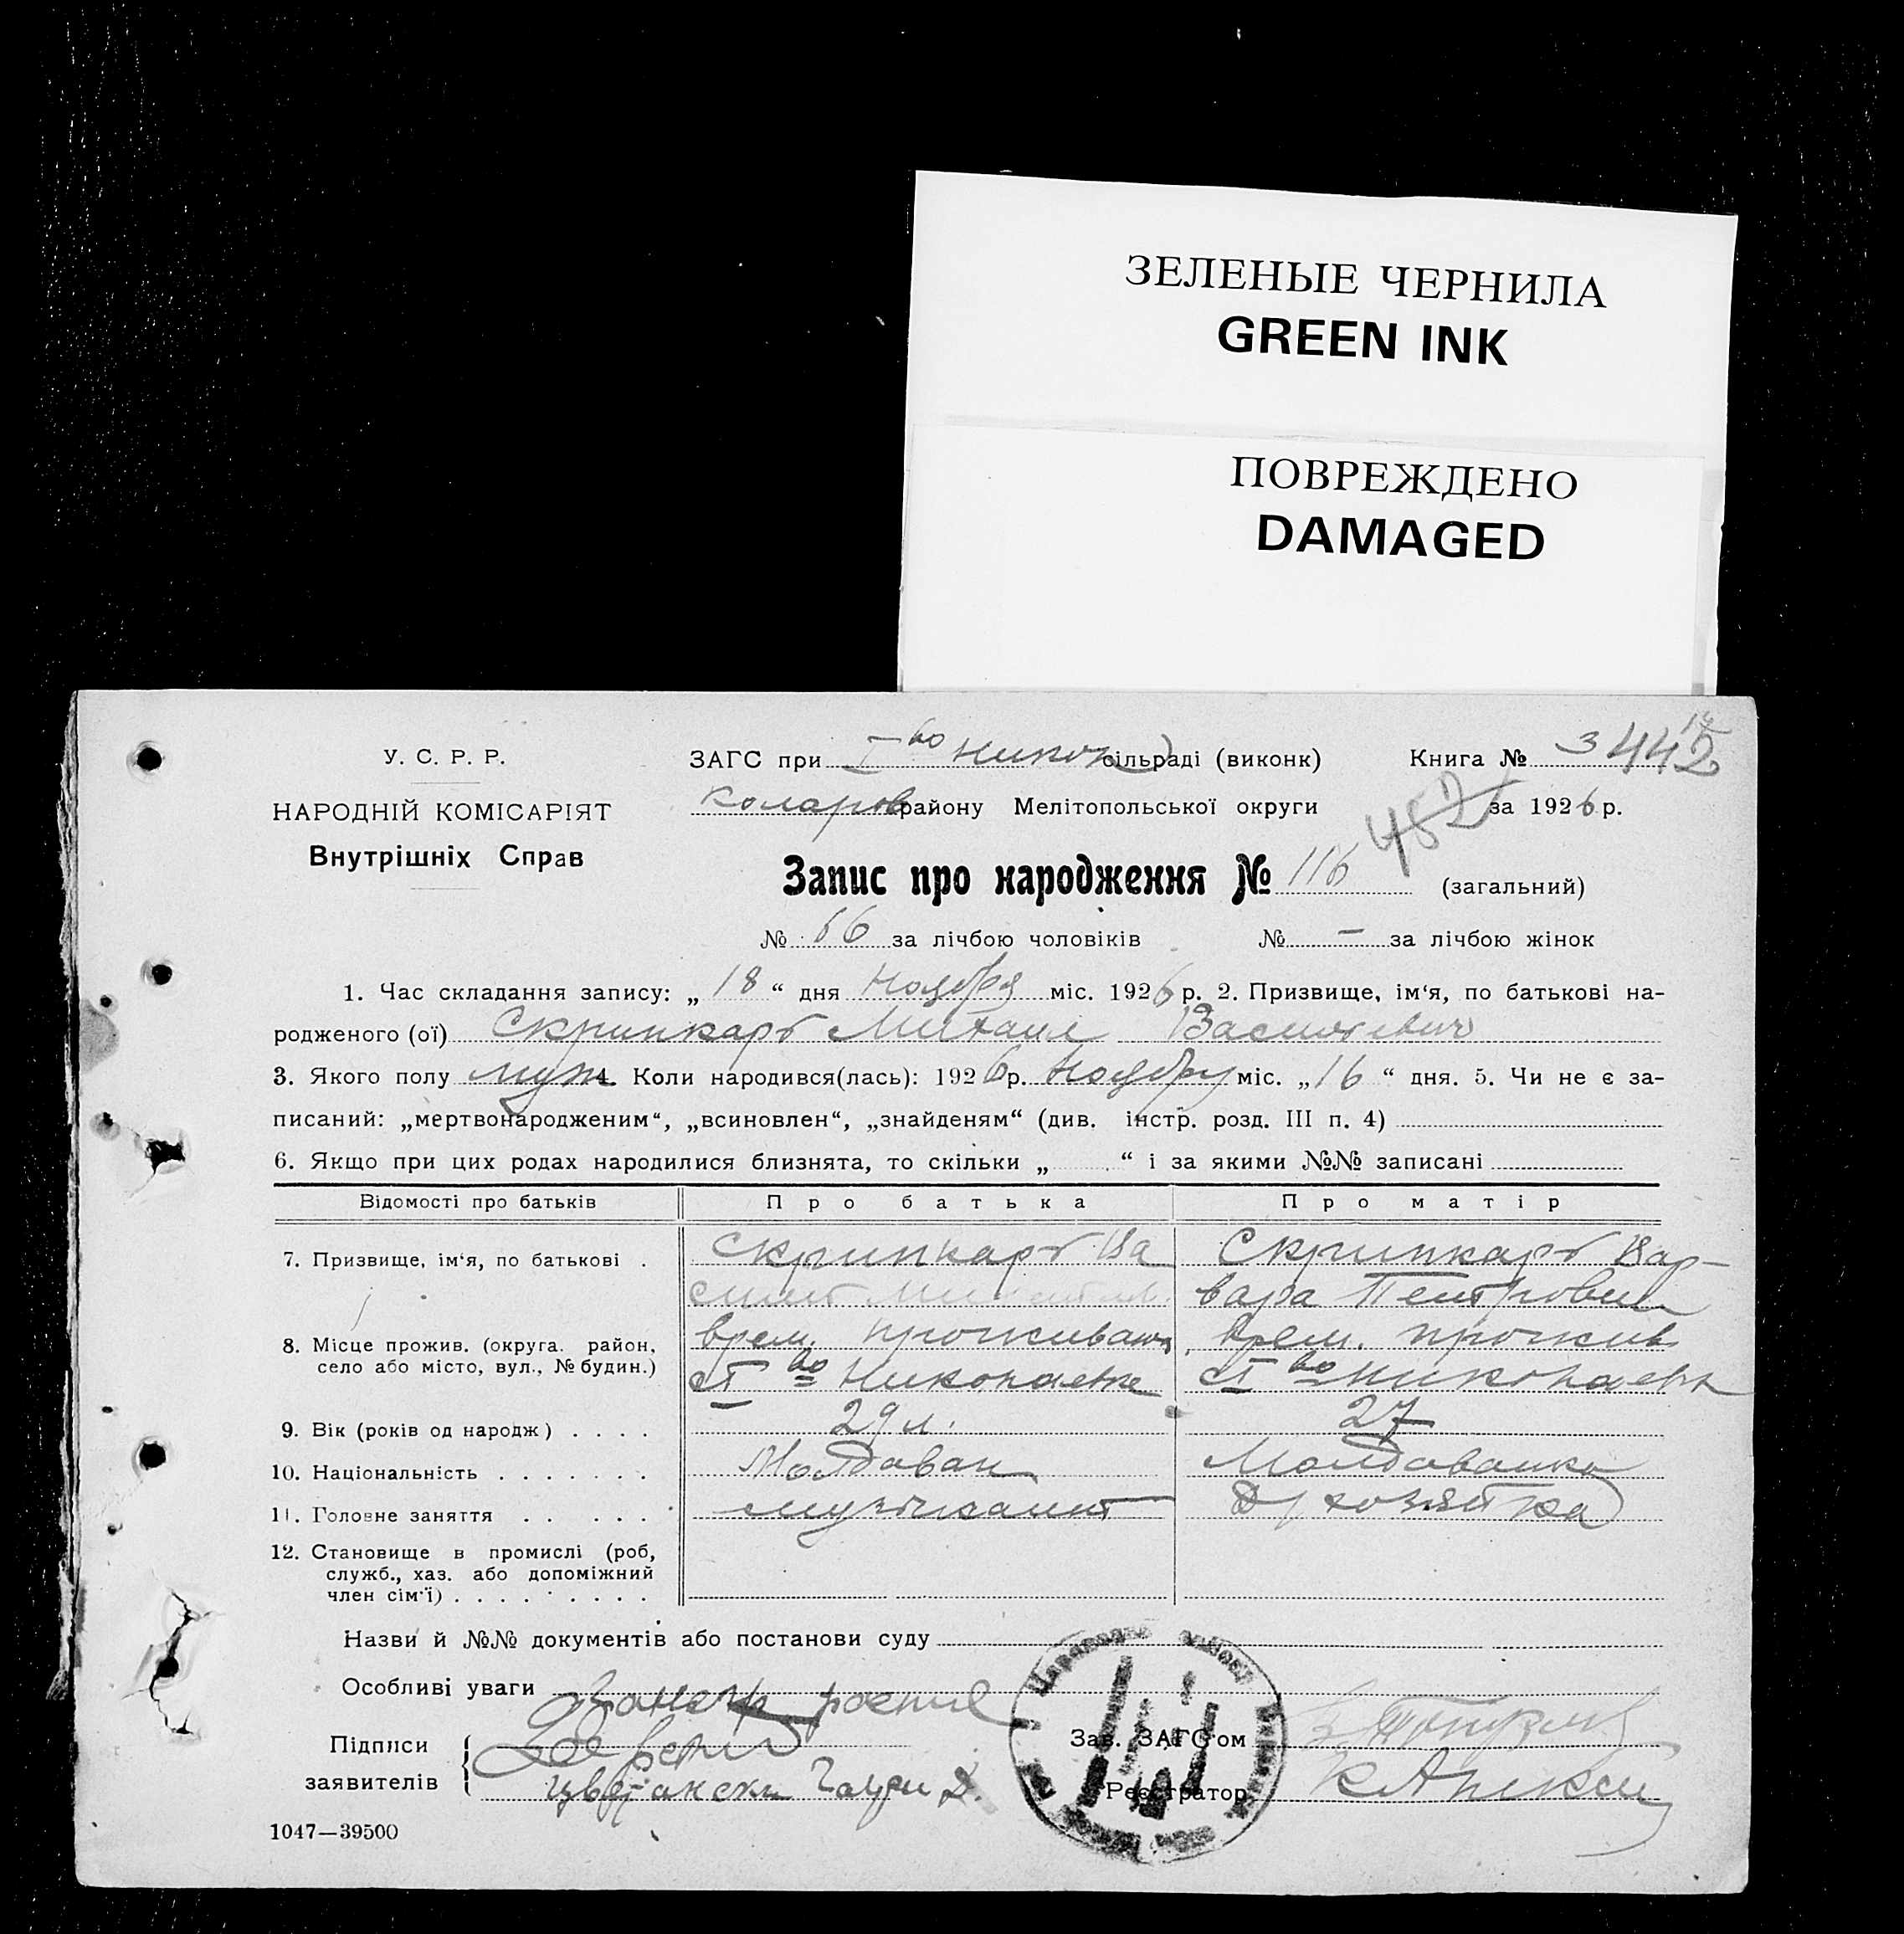 ЗЕЛЕНЫЕ ЧЕРНИЛА
GREEN INK
ПОВРЕЖДЕНО
DAMAGED
У. С. Р. Р.
НАРОДНІЙ КОМІСАРІЯТ
Внутрішніх Справ
ЗАГС при I во Никол сільраді (виконк)
Книга № 3 442
Коларов району Мелітопольської округи
457 за 1926 р.
Запис про народження № 116 (загальний)
№ 66 за лічбою чоловіків № — за лічбою жінок
1. Час складання запису: „ 18 “ дня Ноября міс. 1926 р. 2. Призвище, ім‘я, по батькові на-
родженого (ої) Скрипкарь Михаил Васильевич
3. Якого полу муж 4. Коли народився(лась): 1926 р. Ноября міс. „16 “ дня. 5. Чи не є за-
писаний: „мертвонародженим“, „всиновлен“, „знайденям“ (див. інстр. розд. III п. 4)
6. Якщо при цих родах народилися близнята, то скільки „ “ і за якими №№ записані
Відомості про батьків Про батька Про матір
7. Призвище, ім‘я, по батькові . Скрипкарь Ва Скрипкарь Вар-
вара Петровна
8. Місце прожив. (округа. район, врем. проживают врем. прожив
село або місто, вул., № будин.) I во Николаевке I во Николаевк
9. Вік (років од народж) . . . . 29 л. 27
10. Національність . . . . . . . Молдован Молдованка
11. Головне заняття . . . . . музыкант Д/хозяйка
12. Становище в промислі (роб,
служб., хаз. або допоміжний
член сім‘ї) . . . . . . . . .
Назви й №№ документів або постанови суду
Особливі уваги
Підписи
заявителів
Зав. ЗАГС‘ом
Реєстратор
1047—39500